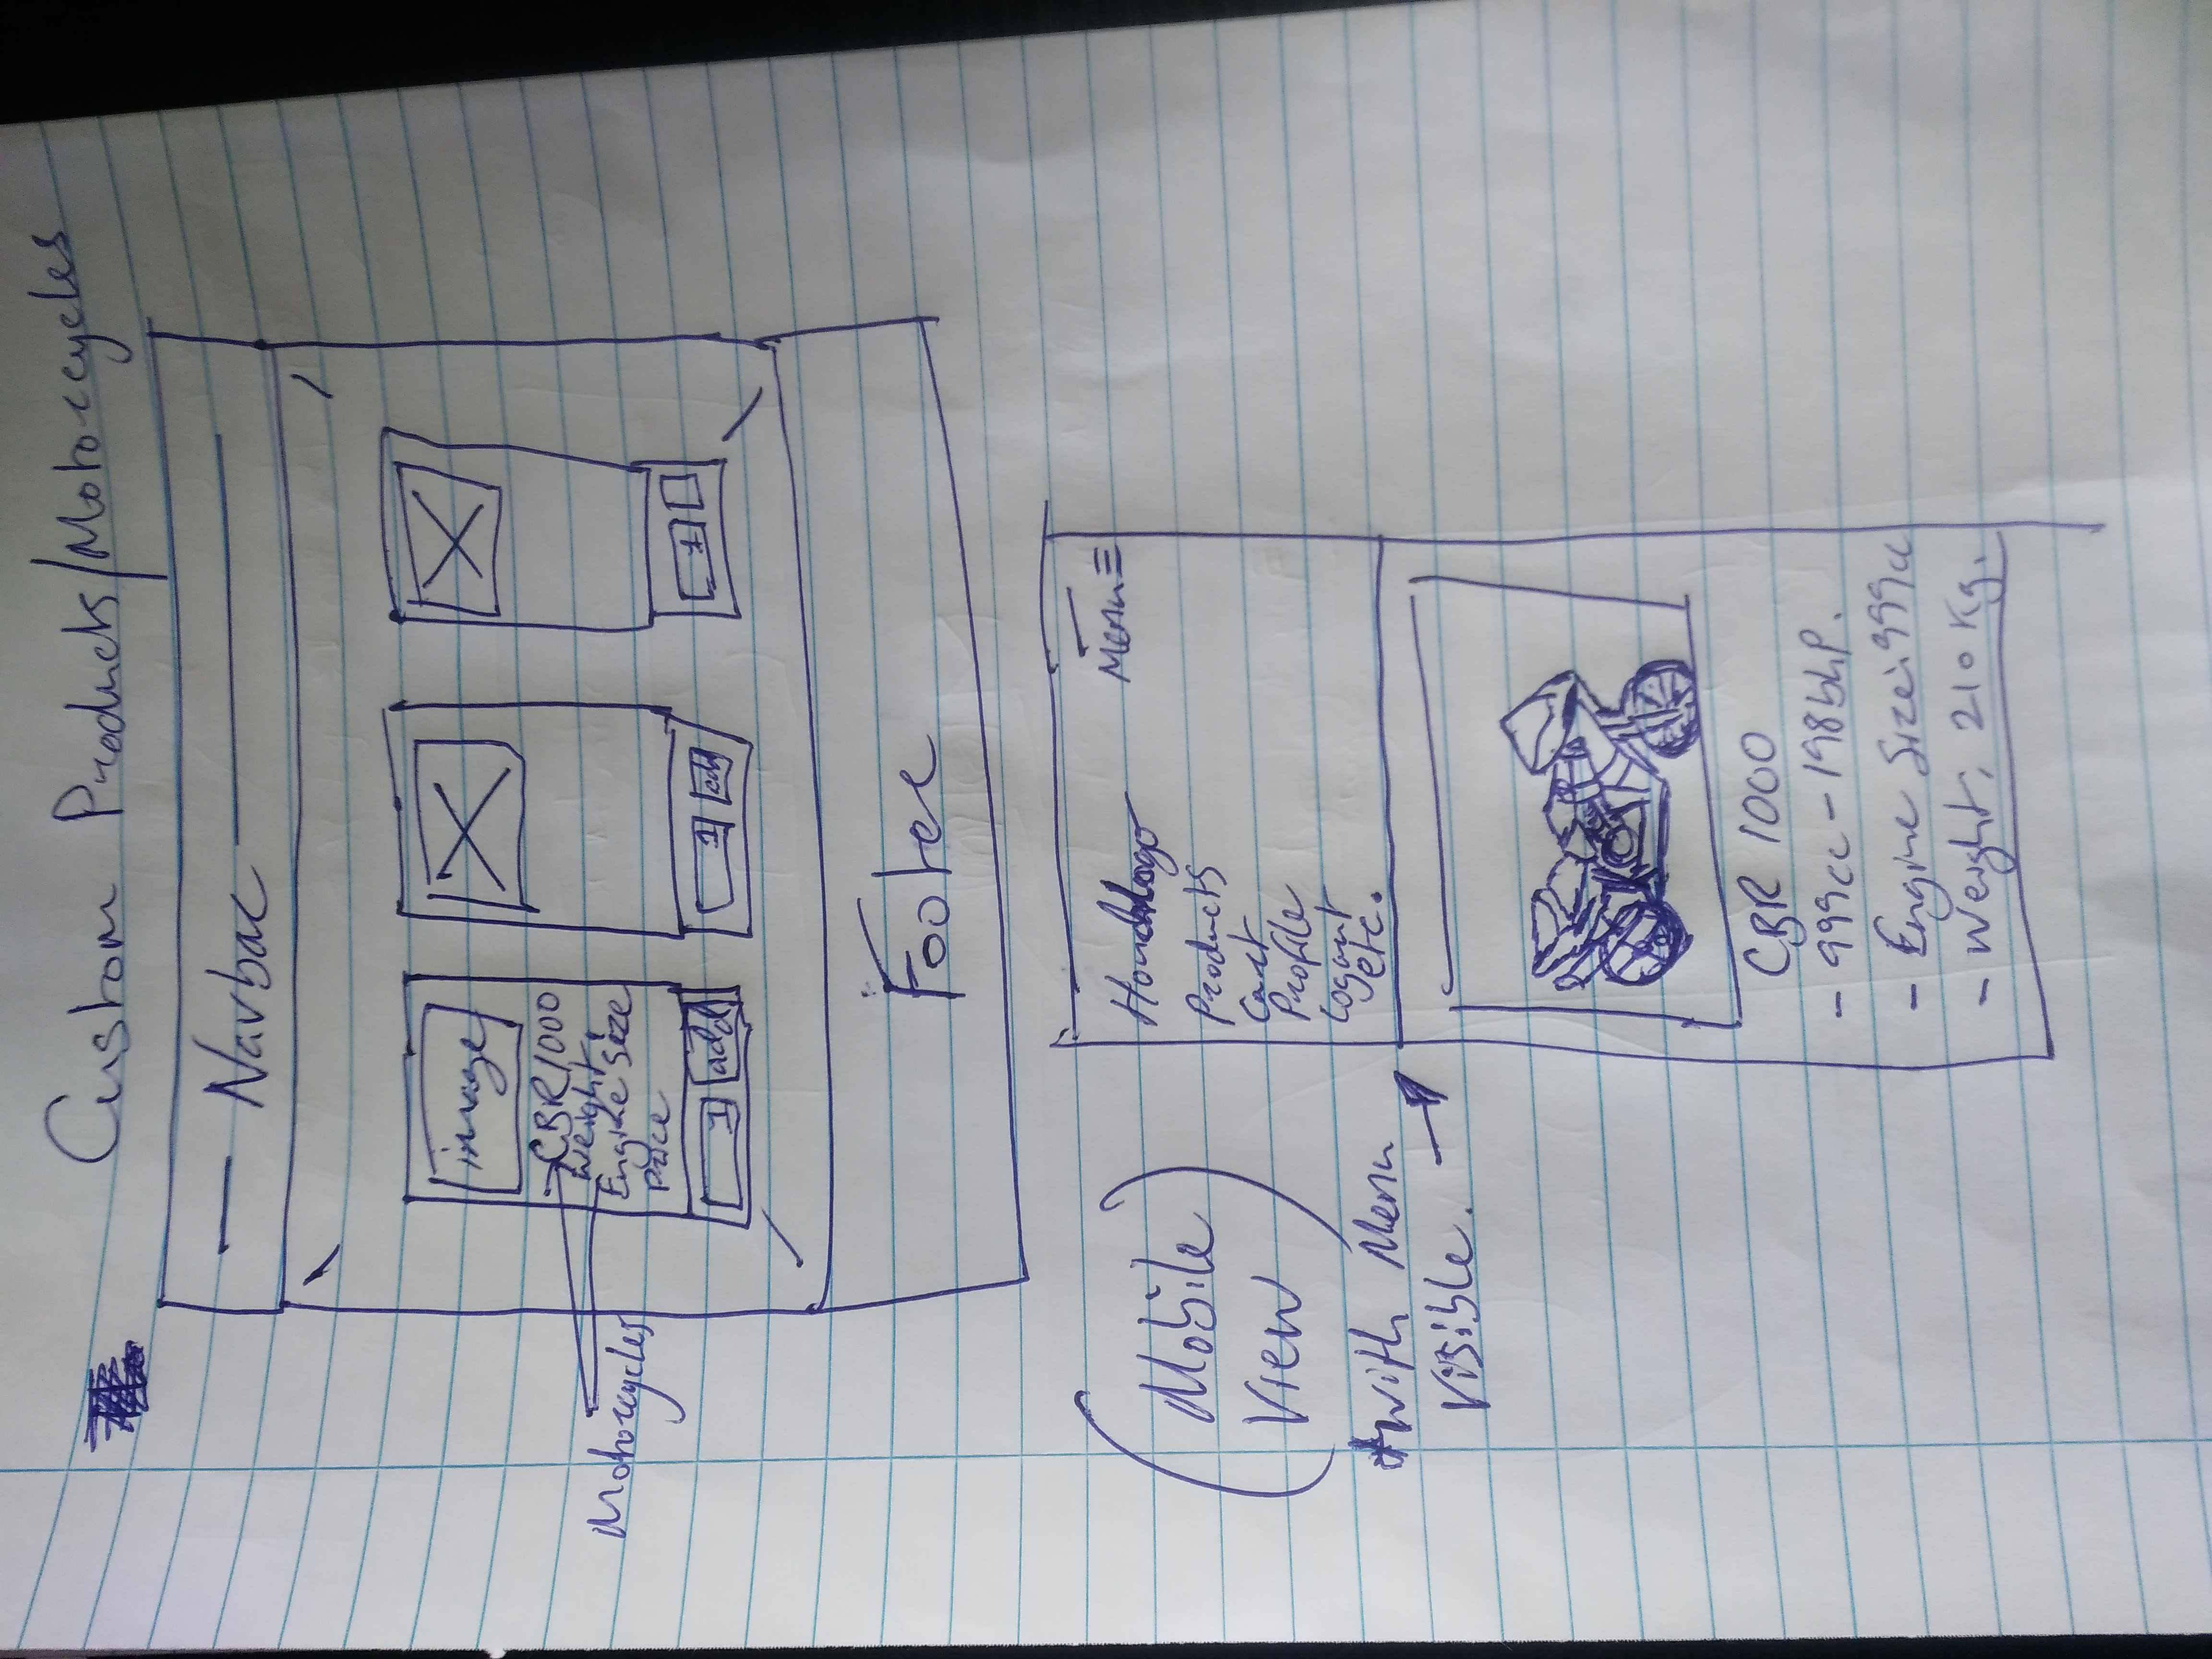 Custom Products/Motorcycles
Navbar
image
CBR1000
Weight:
Engine Size
Price
1 add
1
Motorcycles
Footer
Mobile
View
with Menu
Visible.
Menu
Products
Cart
Profile
Logout
etc.
CBR 1000
- 999cc - 198bhp.
- Engine Size: 999cc
- Weight: 210 Kg.